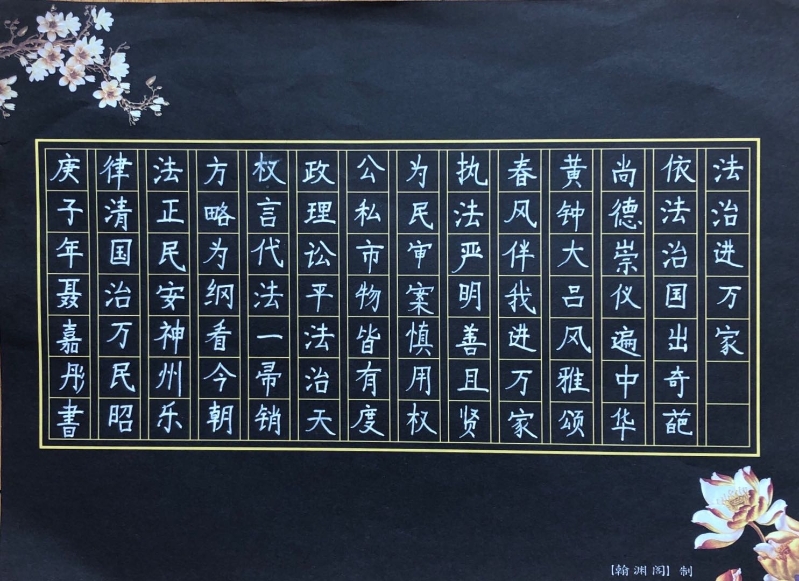 法治进万家
依法治国出奇葩
尚德崇仪遍中华
黄钟大吕风雅颂
春风伴我进万家
执法严明善且贤
为民审案慎用权
公私市物皆有度
政理讼平法治天
权言代法一帚销
方略为纲看今朝
法正民安神州乐
律清国治万民昭
庚子年聂嘉彤書
【翰渊阁】制